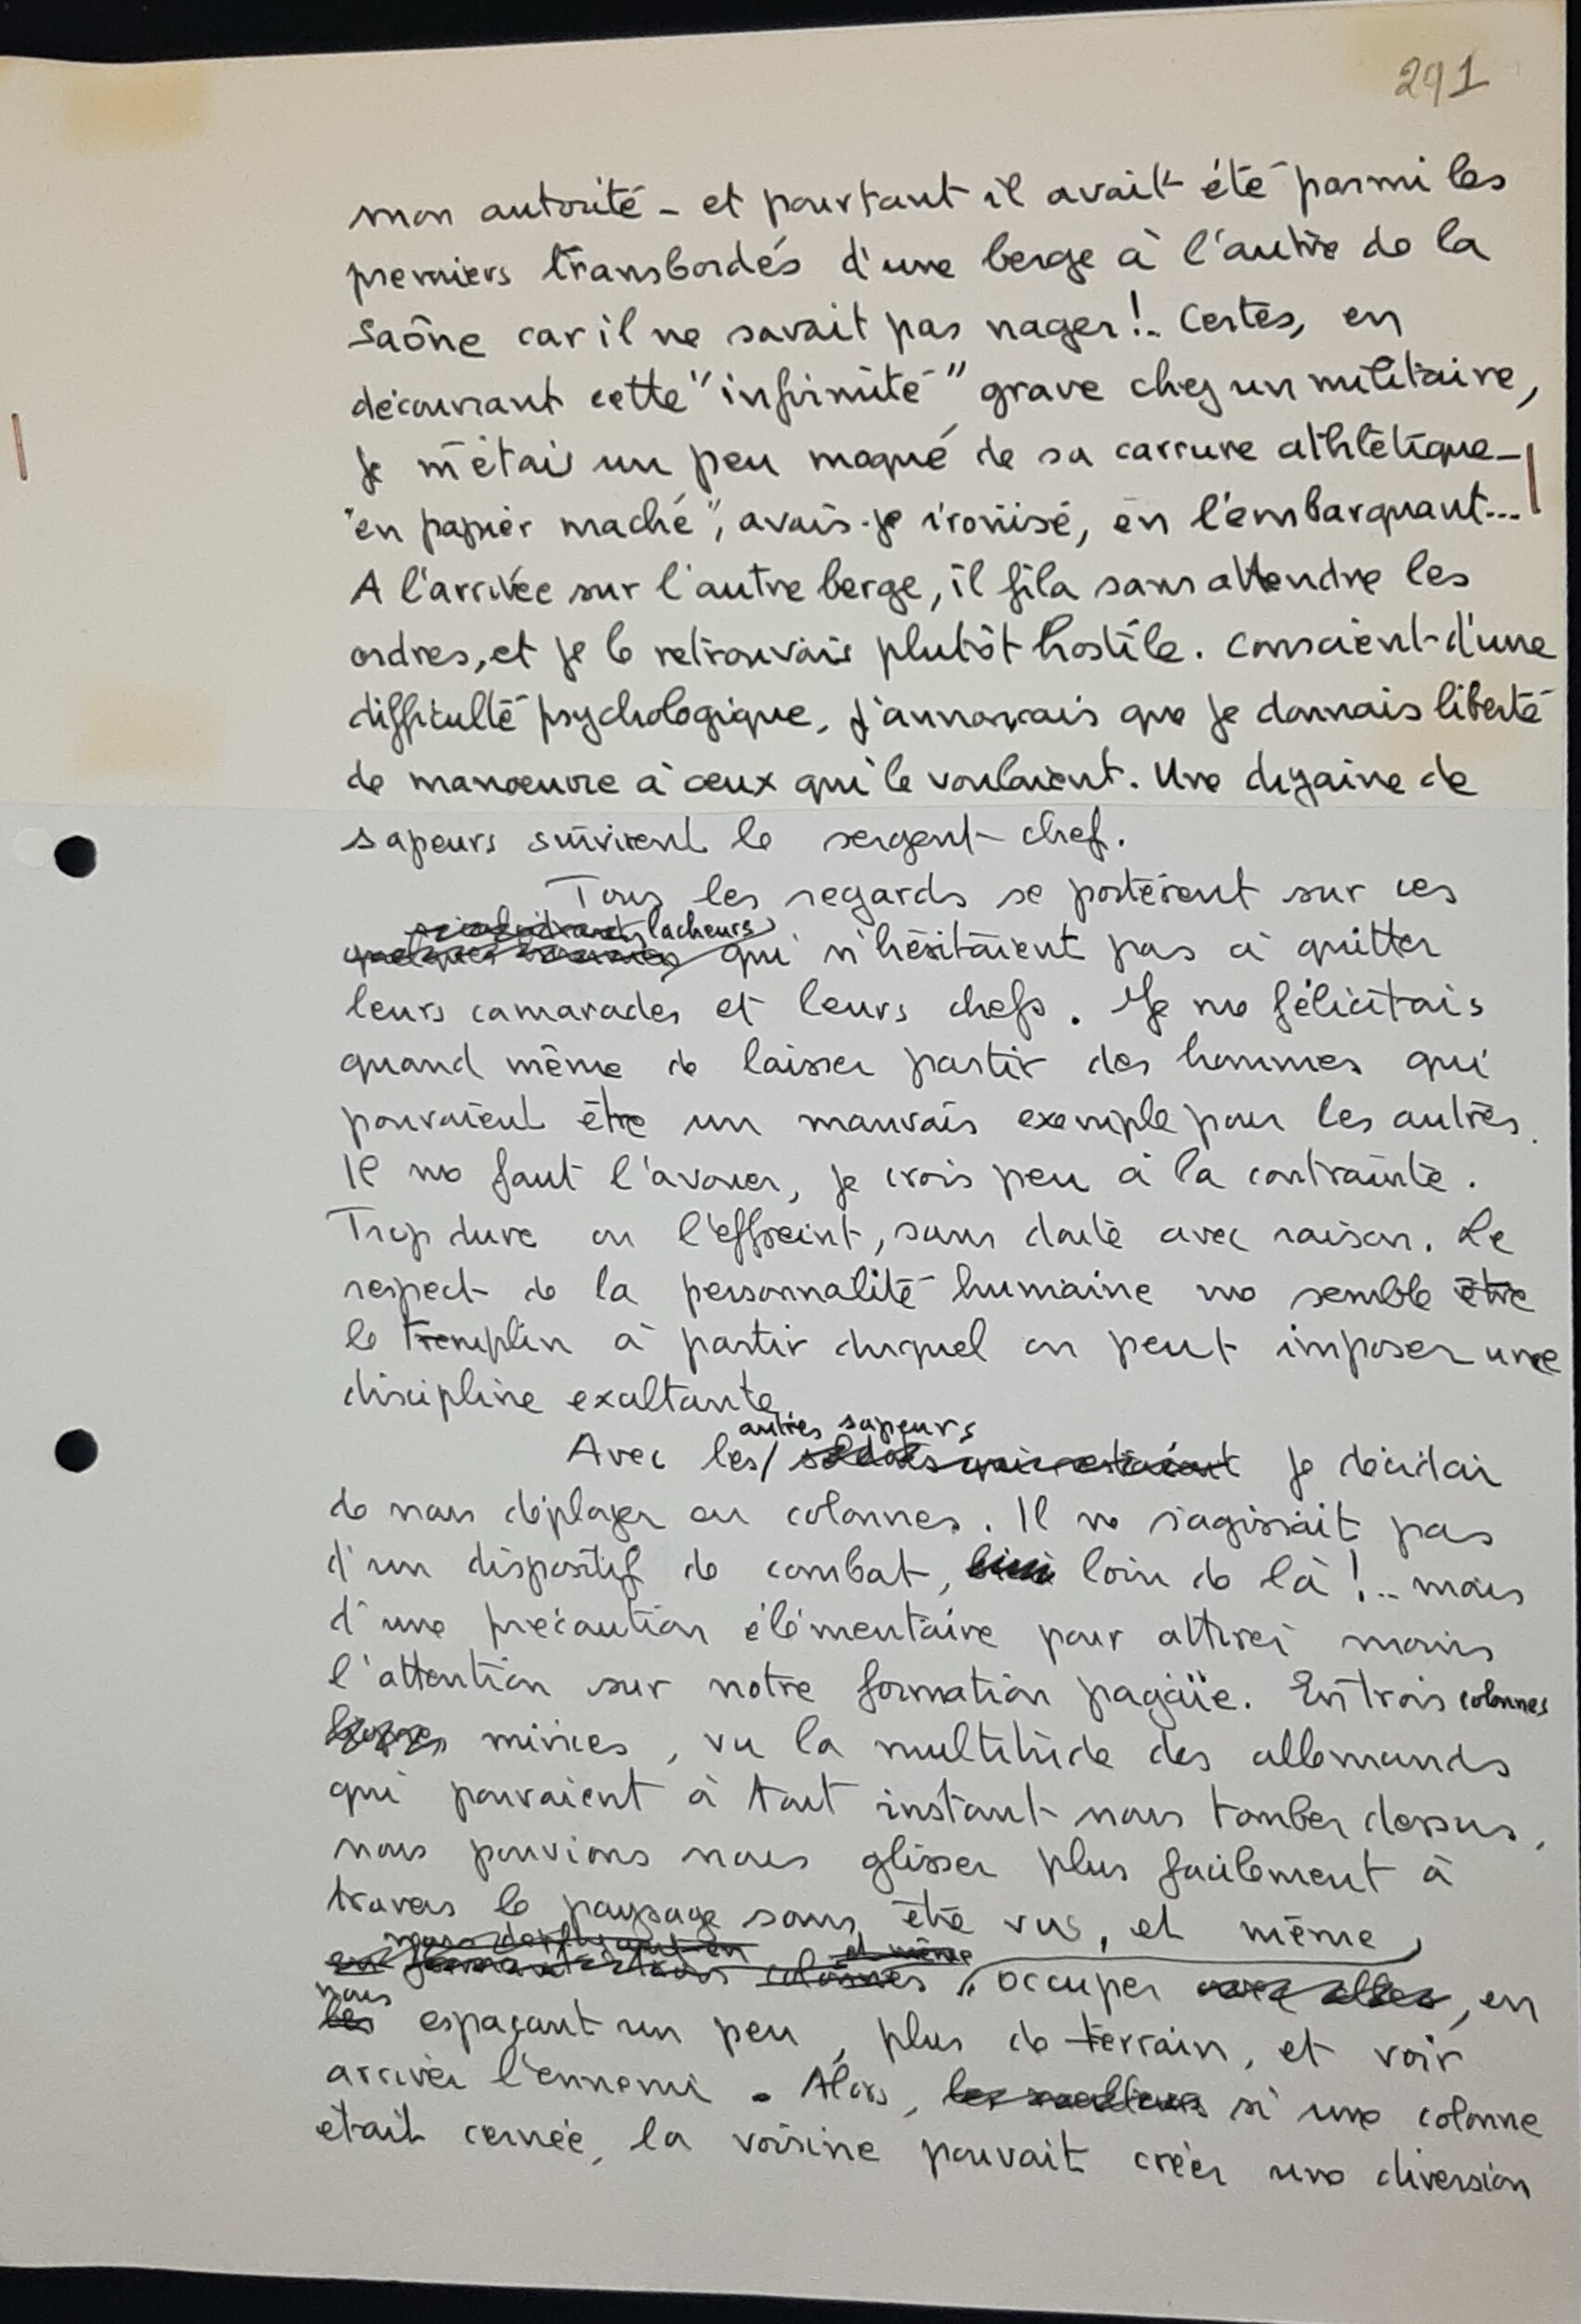 291
mon autorité - et pourtant il avait été parmi les
premiers transbordés d'une berge à l'autre de la
Saône car il ne savait pas nager !.. Certes, en
découvrant cette "infirmité" grave chez un militaire,
je m'étais un peu moqué de sa carrure athlétique -
"en papier maché", avais-je ironisé, en l'embarquant...
A l'arrivée sur l'autre berge, il fila sans attendre les
ordres, et je le retrouvais plutôt hostile. Conscient d'une
difficulté psychologique, j'annonçais que je donnais liberté
de manoeuvre à ceux qui le voulaient. Une dizaine de
sapeurs suivirent le sergent-chef.
Tous les regards se portèrent sur ces
lacheurs
quelques hommes qui n'hésitaient pas à quitter
leurs camarades et leurs chefs. Je me félicitais
quand même de laisser partir des hommes qui
pouvaient être un mauvais exemple pour les autres.
Il me faut l'avouer, je crois peu à la contrainte.
Trop dure on l'effreint, sans doute avec raison. Le
respect de la personnalité humaine me semble être
le tremplin à partir duquel on peut imposer une
discipline exaltante.
autres sapeurs
Avec les / soldats qui restaient je décidai
de nous déplacer en colonnes. Il ne s'agissait pas
d'un dispositif de combat, loin de là !.. mais
d'une précaution élémentaire pour attirer moins
l'attention sur notre formation pagaïe. En trois colonnes
minces, vu la multitude des allemands
qui pouvaient à tout instant nous tomber dessus,
nous pouvions nous glisser plus facilement à
travers le paysage sans être vus, et même
nous déployant en et même
en formant trois colonnes occuper avec elles, en
nous
les espaçant un peu, plus de terrain, et voir
arriver l'ennemi. Alors, si une colonne
était cernée, la voisine pouvait créer une diversion